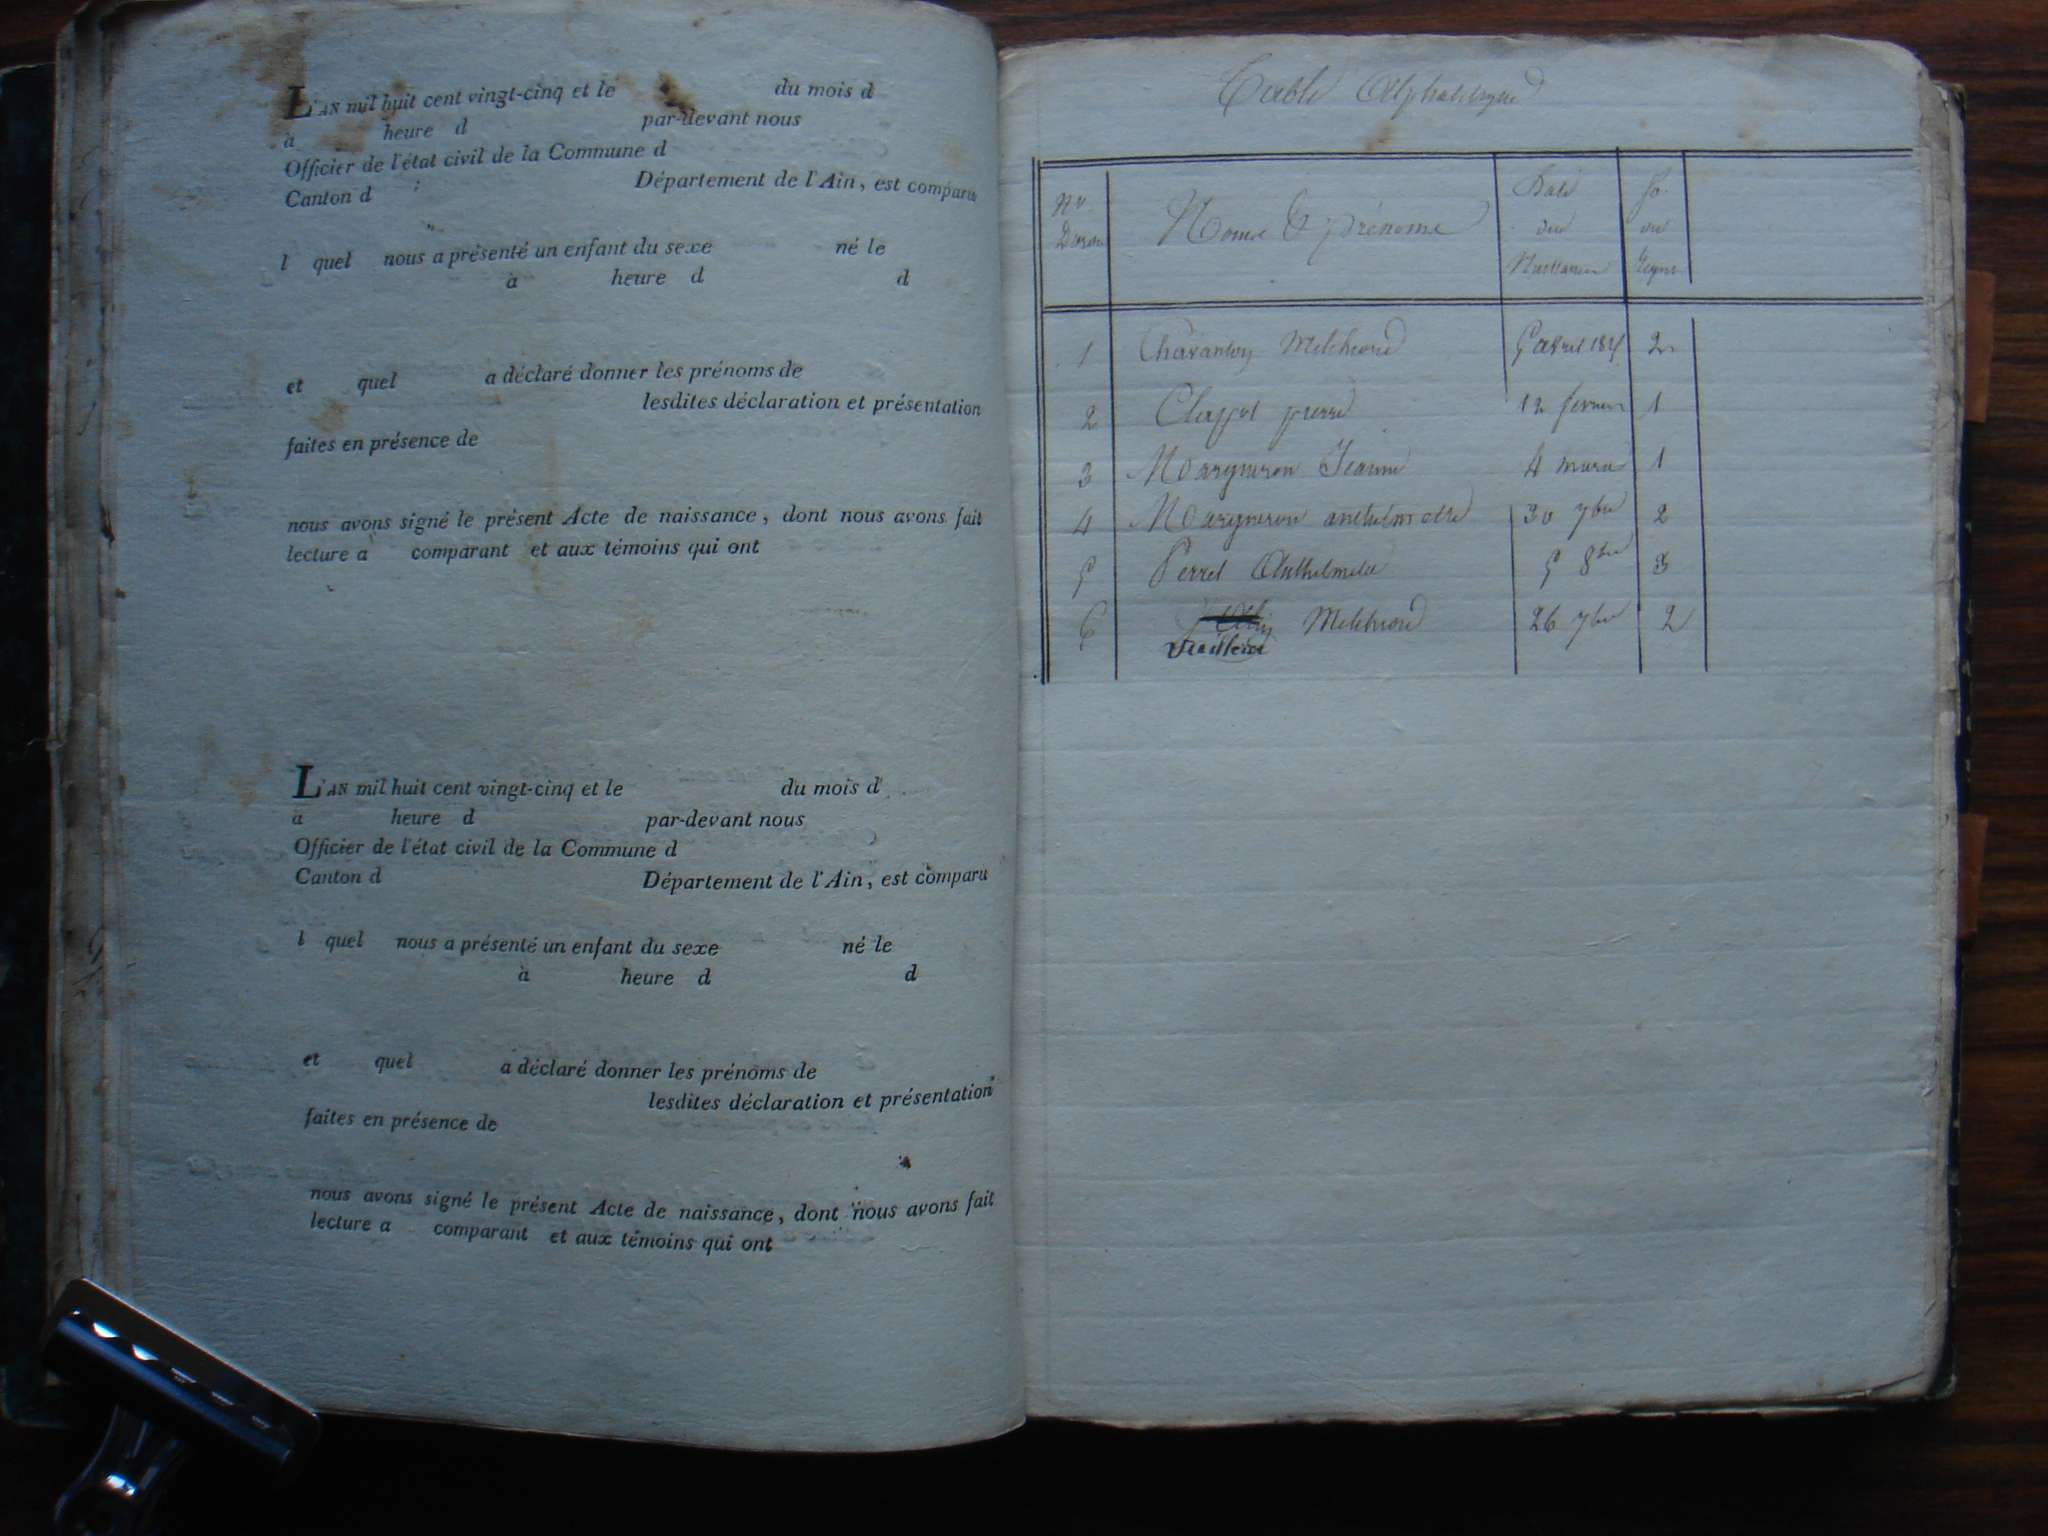 L'AN mil huit cent vingt-cinq et le du mois d
à heure d par-devant nous
Officier de l'état civil de la Commune d
Canton d Département de l'Ain, est comparu
l quel nous a présenté un enfant du sexe né le
à heure d d
et quel a déclaré donner les prénoms de
lesdites déclaration et présentation
faites en présence de
nous avons signé le présent Acte de naissance, dont nous avons fait
lecture a comparant et aux témoins qui ont
L'AN mil huit cent vingt-cinq et le du mois d
à heure d par-devant nous
Officier de l'état civil de la Commune d
Canton d Département de l'Ain, est comparu
l quel nous a présenté un enfant du sexe né le
à heure d d
et quel a déclaré donner les prénoms de
lesdites déclaration et présentation
faites en présence de
nous avons signé le présent Acte de naissance, dont nous avons fait
lecture a comparant et aux témoins qui ont
Table Alphabetique
Nos Noms & prénoms Date fo.
des du
Naissances
1 Melchiord 5 avril 2
2 pierre 12 fevrier 1
3 Jeanne 4 mars 1
4 anthelmette 30 7bre 2
5 Perret Anthelmette 5 8bre 3
6 Melchiord 26 7bre 2